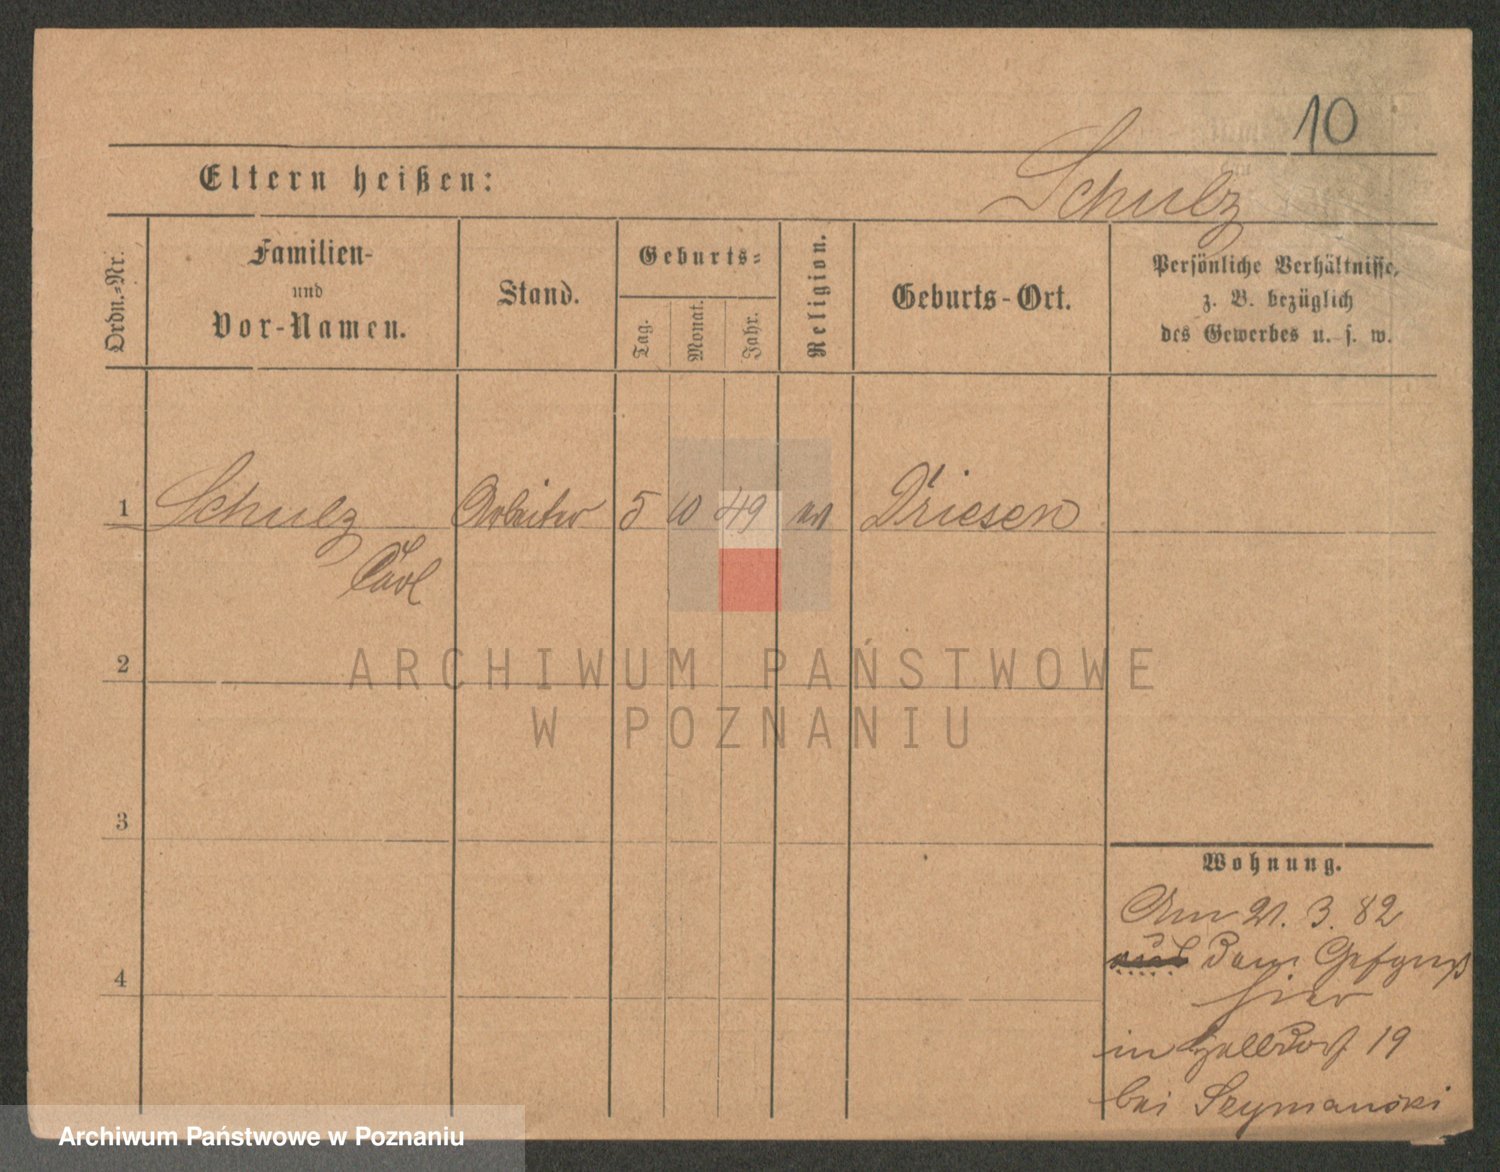 10
Eltern heißen:
Schulz
Ordn.-Nr.
Familien-
und
Vor-Namen.
Stand.
Geburts-
Tag.
Monat.
Jahr.
Religion.
Geburts-Ort.
Persönliche Verhältnisse,
z. B. bezüglich
des Gewerbes u. s. w.
1 Schulz Arbeiter 5 10 49 ev Driesen
Carl
2
3
4
Wohnung.
Am 21. 3. 82
aus dem
hier
in Halldorf 19
bei Szymanski
ARCHIWUM PAŃSTWOWE
W POZNANIU
Archiwum Państwowe w Poznaniu